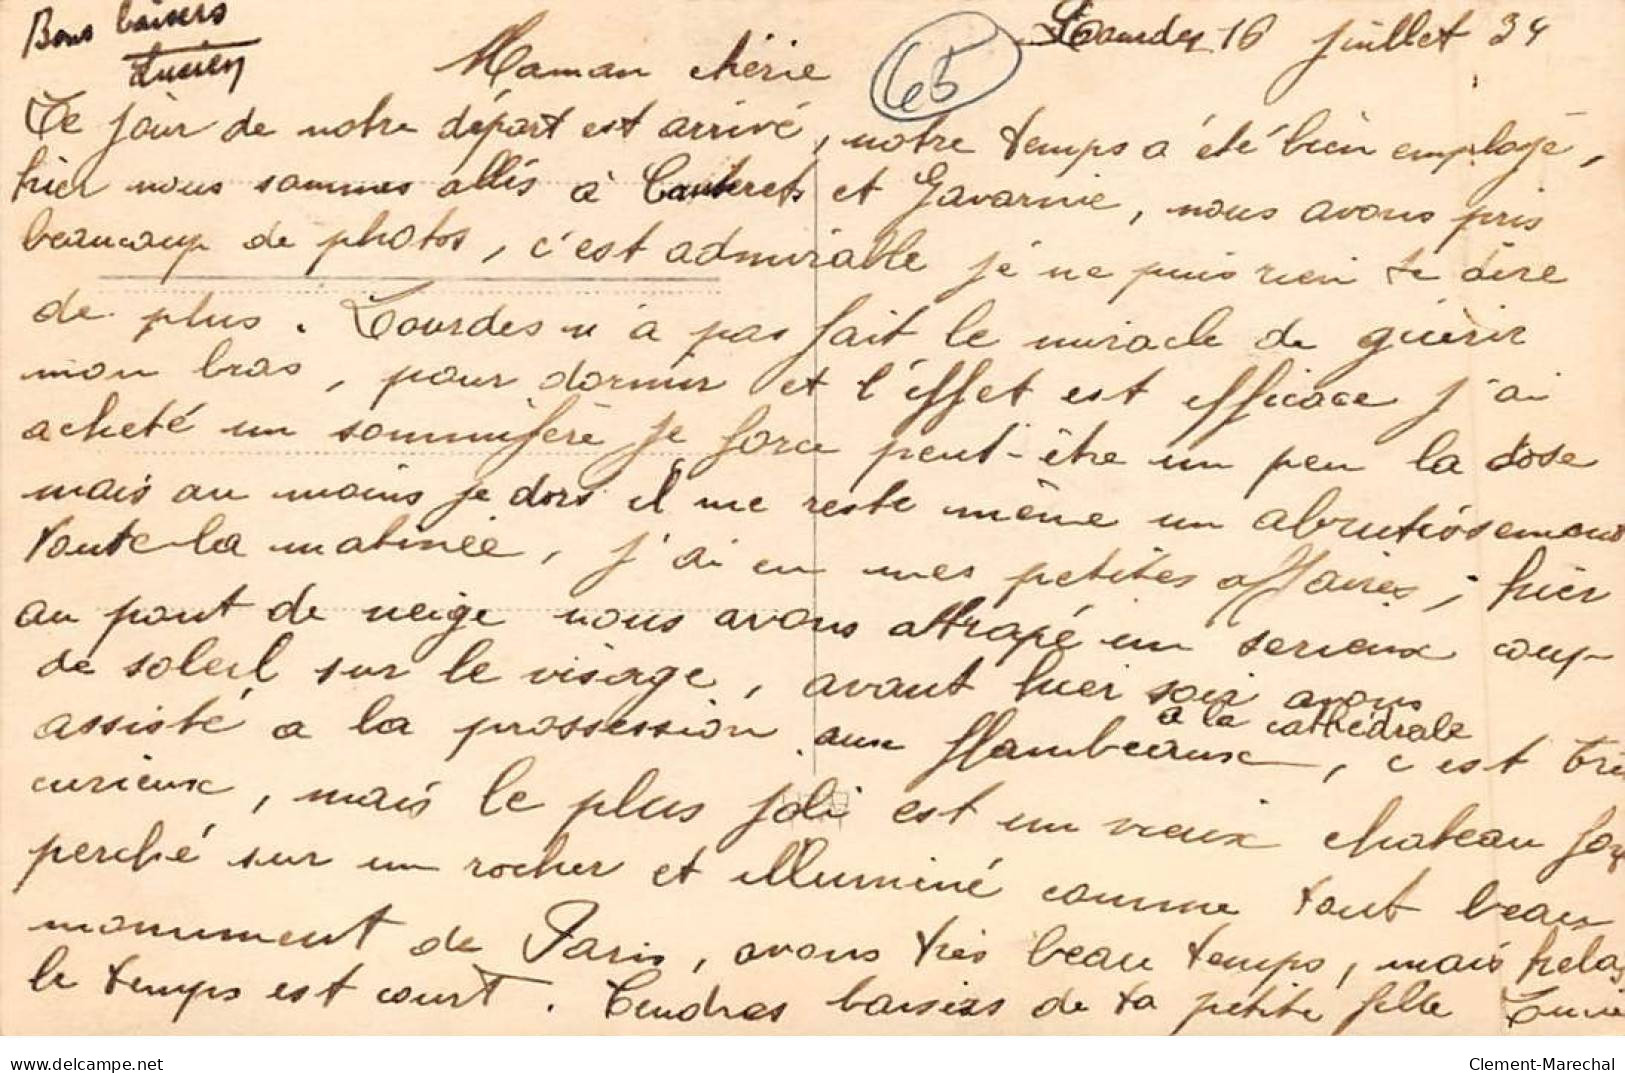 Bons baisers
Lucien
Lourdes 16 juillet 34
65
Maman chérie
Le jour de notre départ est arrivé, notre temps a été bien employé,
hier nous sommes allés à Cauterets et Gavarnie, nous avons pris
beaucoup de photos, c'est admirable je ne puis rien te dire
de plus. Lourdes n'a pas fait le miracle de guérir
mon bras, pour dormir et l'effet est efficace j'ai
acheté un somnifère je force peut-être un peu la dose
mais au moins je dors il me reste même un abrutissement
toute la matinée, j'ai eu mes petites affaires, hier
au pont de neige nous avons attrapé un serieux coup
de soleil sur le visage, avant hier soir avons
assisté a la prossession aux flambeaux, a la cathédrale c'est
curieux, mais le plus joli est un vieux chateau
perché sur un rocher et illuminé comme tout beau
monument de Paris, avons très beau temps, mais hela
le temps est court. Tendres baisers de ta petite fille
delcampe.net
Clement-Marechal